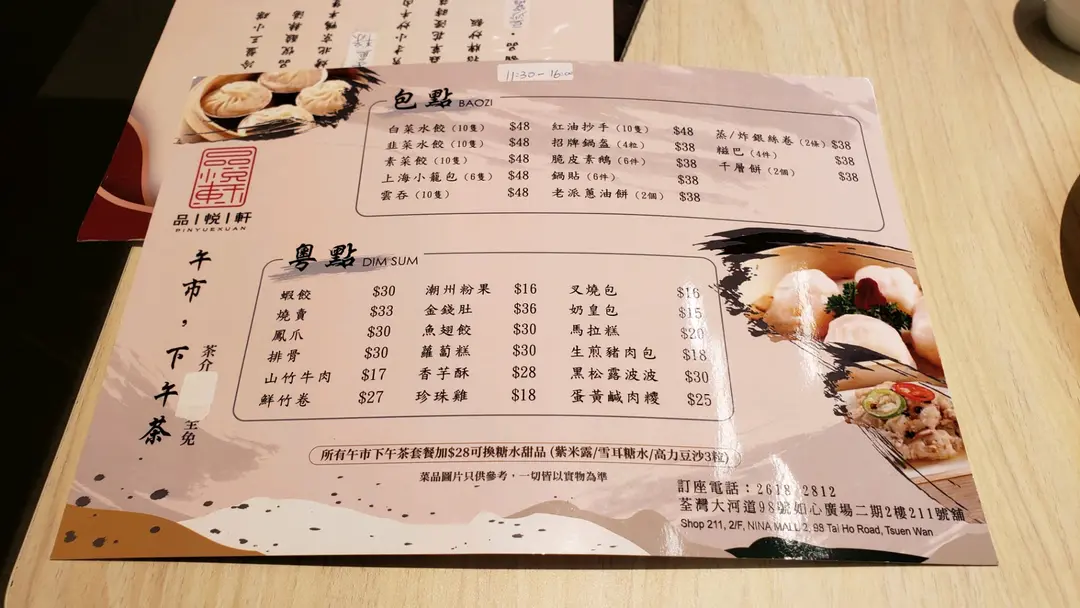 11:30-16:00
包點 BAOZI
白菜水餃（10隻） $48
韭菜水餃（10隻） $48
素菜餃（10隻） $48
上海小籠包（6隻） $48
雲吞（10隻） $48
紅油抄手（10隻） $48
招牌鍋盔（4粒） $38
脆皮素鵝（6件） $38
鍋貼（6件） $38
老派蔥油餅（2個） $38
蒸/炸銀絲卷（2條） $38
糍巴（4件） $38
千層餅（2個） $38
品悅軒
品|悅|軒
PINYUEXUAN
午市，下午茶
茶介
全免
粵點 DIM SUM
蝦餃 $30
燒賣 $33
鳳爪 $30
排骨 $30
山竹牛肉 $17
鮮竹卷 $27
潮州粉果 $16
金錢肚 $36
魚翅餃 $30
蘿蔔糕 $30
香芋酥 $28
珍珠雞 $18
叉燒包 $16
奶皇包 $15
馬拉糕 $20
生煎豬肉包 $18
黑松露波波 $30
蛋黃鹹肉糭 $25
所有午市下午茶套餐加$28可換糖水甜品 (紫米露/雪耳糖水/高力豆沙3粒)
菜品圖片只供參考，一切皆以實物為準
訂座電話：2618 2812
荃灣大河道98號如心廣場二期2樓211號舖
Shop 211, 2/F, NINA MALL 2, 98 Tai Ho Road, Tsuen Wan